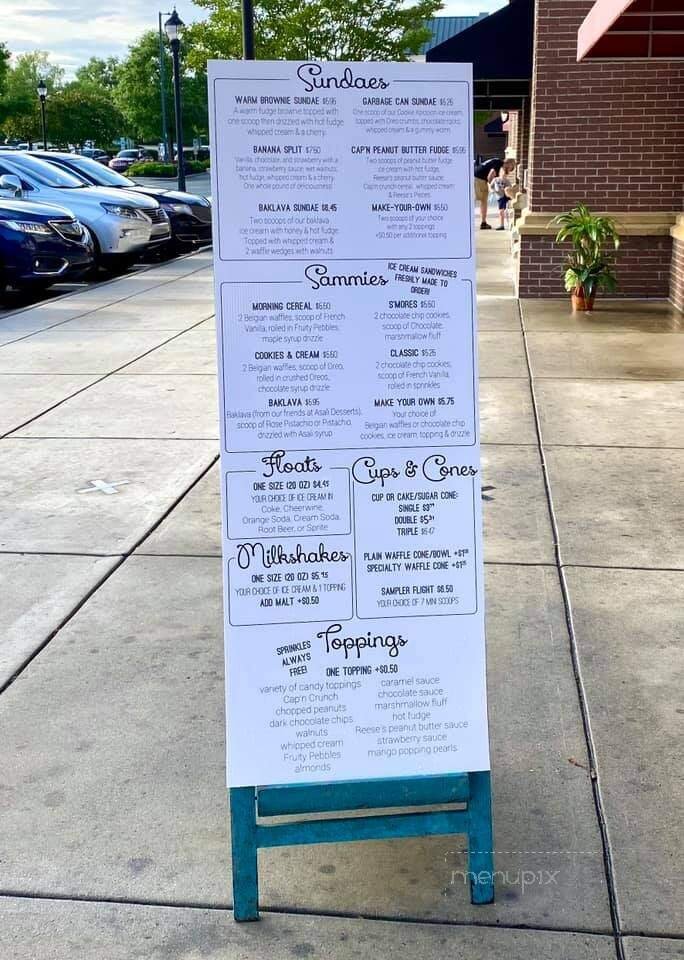 Sundaes
WARM BROWNIE SUNDAE $5.95
A warm fudge brownie topped with
one scoop then drizzled with hot fudge,
whipped cream & a cherry.
GARBAGE CAN SUNDAE $5.25
One scoop of our Cookie Apocoon ice cream,
topped with Oreo crumbs, chocolate rocks,
whipped cream & a gummy worm.
BANANA SPLIT $7.50
Vanilla, chocolate, and strawberry with a
banana, strawberry sauce, wet walnuts,
hot fudge, whipped cream & a cherry.
One whole pound of deliciousness!
CAP'N PEANUT BUTTER FUDGE $5.95
Two scoops of peanut butter fudge
ice cream with hot fudge,
Reese's peanut butter sauce,
Cap'n crunch cereal, whipped cream
& Reese's Pieces.
BAKLAVA SUNDAE $6.45
Two scoops of our baklava
ice cream with honey & hot fudge.
Topped with whipped cream &
2 waffle wedges with walnuts
MAKE-YOUR-OWN $5.50
Two scoops of your choice
with any 2 toppings
+$0.50 per additional topping
Sammies
ICE CREAM SANDWICHES
FRESHLY MADE TO
ORDER!
MORNING CEREAL $6.50
2 Belgian waffles, scoop of French
Vanilla, rolled in Fruity Pebbles,
maple syrup drizzle
S'MORES $5.50
2 chocolate chip cookies,
scoop of Chocolate,
marshmallow fluff
COOKIES & CREAM $5.50
2 Belgian waffles, scoop of Oreo,
rolled in crushed Oreos,
chocolate syrup drizzle
CLASSIC $5.25
2 chocolate chip cookies,
scoop of French Vanilla,
rolled in sprinkles
BAKLAVA $5.95
Baklava (from our friends at Asali Desserts),
scoop of Rose Pistachio or Pistachio,
drizzled with Asali syrup
MAKE YOUR OWN $5.75
Your choice of
Belgian waffles or chocolate chip
cookies, ice cream, topping & drizzle
Floats
ONE SIZE (20 OZ) $4.95
YOUR CHOICE OF ICE CREAM IN
Coke, Cheerwine,
Orange Soda, Cream Soda,
Root Beer, or Sprite
Milkshakes
ONE SIZE (20 OZ) $5.95
YOUR CHOICE OF ICE CREAM & 1 TOPPING
ADD MALT +$0.50
Cups & Cones
CUP OR CAKE/SUGAR CONE:
SINGLE
DOUBLE
TRIPLE
PLAIN WAFFLE CONE/BOWL
SPECIALTY WAFFLE CONE
SAMPLER FLIGHT $6.50
YOUR CHOICE OF 7 MINI SCOOPS
Toppings
SPRINKLES
ALWAYS
FREE!
ONE TOPPING +$0.50
variety of candy toppings
Cap'n Crunch
chopped peanuts
dark chocolate chips
walnuts
whipped cream
Fruity Pebbles
almonds
caramel sauce
chocolate sauce
marshmallow fluff
hot fudge
Reese's peanut butter sauce
strawberry sauce
mango popping pearls
menupix